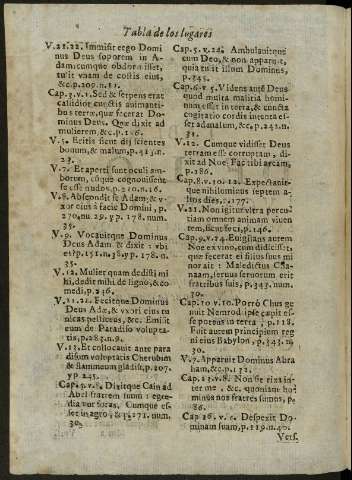 Tabla de los lugares
V.21.22. Immisit ergo Domi
nus Deus soporem in A-
dam: cumque obdormisset,
tulit vnam de costis eius,
&c. p.209. n.11.
Cap.3.v.1. Sed & serpens erat
calidior cunctis animanti-
bus terræ, quæ fecerat Do-
minus Deus. Quæ dixit ad
mulierem, &c. p.126.
V.5. Eritis sicut dij scientes
bonum, & malum, p.413. n.
23.
V.7. Et aperti sunt oculi am-
borum, cũque cognouissent
se esse nudos, p.210. n.16.
V.8. Abscondit se Adam, & v-
xor eius à facie Domini, p.
270. nu.29. yp.178. num.
35.
V.9. Vocauitque Dominus
Deus Adam & dixit: vbi
es? p.151. n.38. yp.178. n.
35.
V.12. Mulier quam dedisti mi
hi, dedit mihi de ligno, & co
medi, p.346.
V.21.22. Fecitque Dominus
Deus Adæ, & vxori eius tu
nicas pelliceas, &c. Emisit
eum de Paradiso volupta-
tis, p.283. n.9.
V.23. Et collocauit ante para
disum voluptatis Cherubim
& flammeum gladiũ, p.207.
yp 245.
Cap.4.v.8. Dixitque Cain ad
Abel fratrem suum: egre-
dia ur foras. Cumque es-
set in agro, & p.272. num.
30.
Cap.5.v.24. Ambulauitque
cum Deo, & non apparuit,
quia tulit illum Dominus,
p.345.
Cap.6.v.5. Videns autẽ Deus
quod multa malitia homi-
num esset in terra, & cuncta
cogitatio cordis intenta es-
set ad malum, &c. p.242. n.
31.
V.12. Cumque vidisset Deus
terram esse corruptam, di-
xit ad Noe, Fac tibi arcam,
p.286.
Cap.8.v.10.12. Expectauit-
que nihilominus septem a-
lios dies, p.177.
V.21. Non igitur vltra percu-
tiam omnem animam viuen
tem, sicut feci, p.146.
Cap.9.v.24. Euigilans autem
Noe ex vino, cum didicisset,
quæ fecerat ei filius suus mi
nor ait: Maledictus Cha-
naam, seruus seruorum erit
fratribus suis, p.343. num.
30.
Cap.10.v.10. Porrò Chus ge
nuit Nemrod: ipse cæpit es-
se potens in terra, p.118.
Fuit autem principium reg
ni eius Babylon, p.343. n.
30.
V.7. Apparuit Dominus Abra
ham, &c. p.172.
Cap.13.v.8. Non sit rixa in-
ter me, &c. quoniam ho-
minus nos fratres sumus, p.
86.
Cap 16.v.4. Despexit Do-
minam suam, p.119. n.40.
Vers.